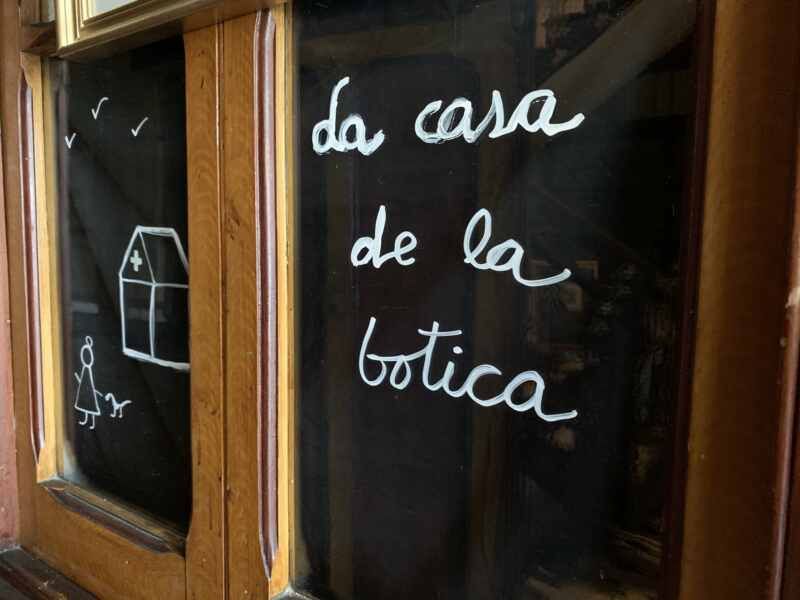 La casa
de la
botica